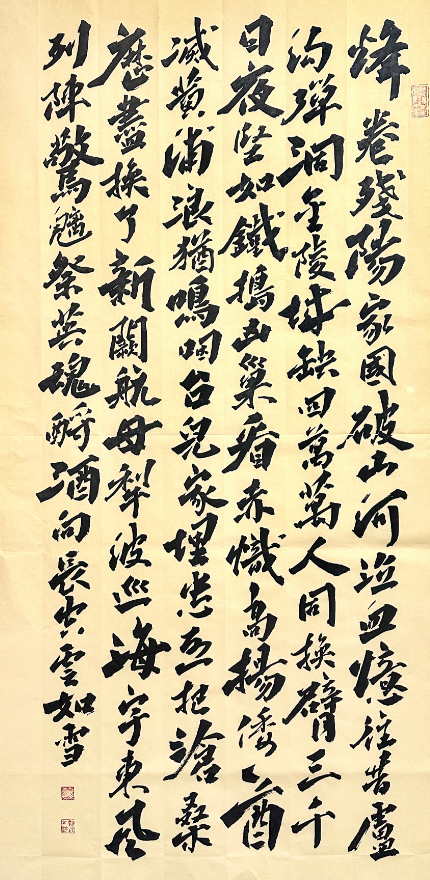 烽卷殘陽家國破山河泣血憶往昔盧
沟彈洞金陵城缺四萬萬人同換臂三千
日夜堅如鐵搗凶巢看赤幟高揚倭酋
滅黃浦浪猶鳴咽台兒家埋忠烈把滄桑
歷盡換了新闕航母犁波巡海宇東风
列陣驚魑祭英魂酹酒向長空雲如雪